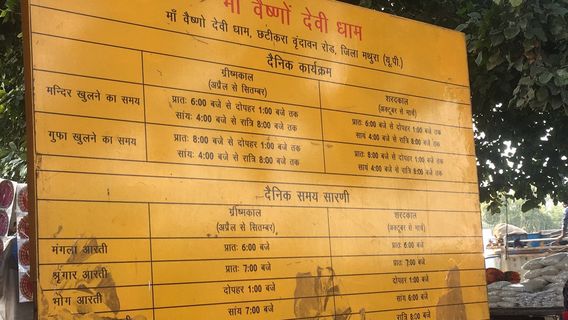 माँ वैष्णों देवी धाम
माँ वैष्णो देवी धाम, छटीकरा वृंदावन रोड, जिला मथुरा (यू.पी.)
दैनिक कार्यक्रम
ग्रीष्मकाल शरदकाल
(अप्रैल से सितम्बर) (अक्टूबर से मार्च)
मन्दिर खुलने का समय प्रातः 6:00 बजे से दोपहर 1:00 बजे तक प्रातः 6:00 बजे से दोपहर 1:00 बजे तक
सांयः 4:00 बजे से रात्रि 8:00 बजे तक सांय 4:00 बजे से रात्रि 8:00 बजे तक
गुफा खुलने का समय प्रातः 8:00 बजे से दोपहर 1:00 बजे तक प्रातः 8:00 बजे से दोपहर 1:00 बजे तक
सांयः 4:00 बजे से रात्रि 8:00 बजे तक सांय 4:00 बजे से रात्रि 8:00 बजे तक
दैनिक समय सारणी
ग्रीष्मकाल शरदकाल
(अप्रैल से सितम्बर) (अक्टूबर से मार्च)
मंगला आरती प्रातः 6:00 बजे प्रातः 6:00 बजे
श्रृंगार आरती प्रातः 7:00 बजे प्रातः 7:00 बजे
भोग आरती दोपहर 1:00 बजे दोपहर 1:00 बजे
सांय 7:00 बजे सांय 6:00 बजे
रात्रि 8:00 बजे